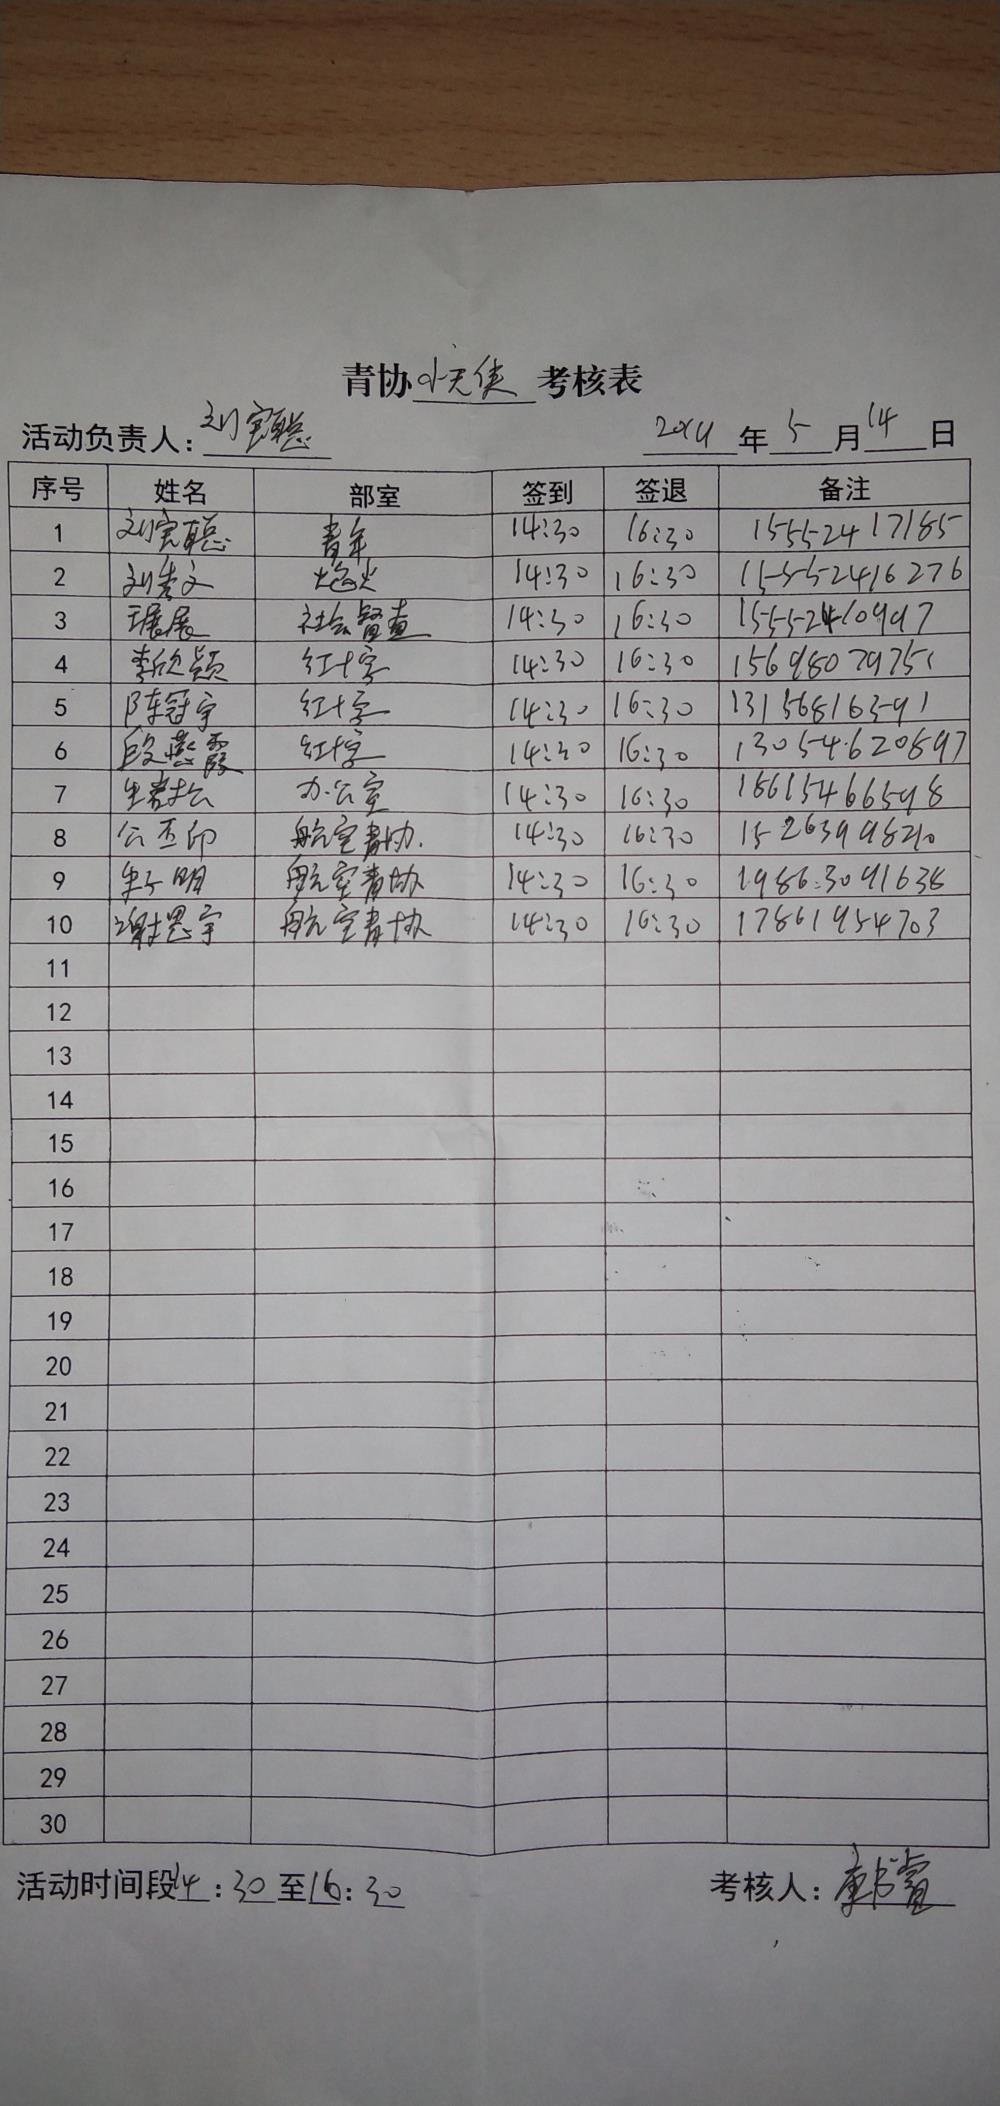 青协小天使考核表
活动负责人：刘宝聪 年5月14日
序号 姓名 部室 签到 签退 备注
1 刘宝聪 青年 14:30 16:30 15552417185
2 刘孝文 焰火 14:30 16:30 15552416276
3 王展展 社会督查 14:30 16:30 15552410997
4 李欣颖 红十字 14:30 16:30 15698079751
5 陈冠宇 红十字 14:30 16:30 13156816391
6 段燕霞 红十字 14:30 16:30 13054620897
7 办公室 14:30 16:30 18615466598
8 航空青协 14:30 16:30
9 明 航空青协 14:30 16:30 19863091638
10 谢思宇 航空青协 14:30 16:30 17861954703
11
12
13
14
15
16
17
18
19
20
21
22
23
24
25
26
27
28
29
30
活动时间段14:30至16:30 考核人：